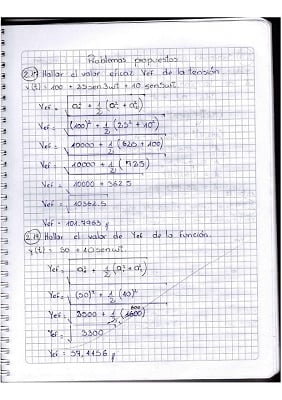 Problemas propuestos
2.15 Hallar el valor eficaz Yef de la tensión.
v(t) = 100 + 25 sen3wt + 10 sen5wt
Yef = √a₀² + 1/2 (a₁² + a₂²)
Yef = √(100)² + 1/2 (25² + 10²)
Yef = √10000 + 1/2 (625 + 100)
Yef = √10000 + 1/2 (725)
Yef = √10000 + 362.5
Yef = √10362.5
Yef = 101.7963
Hallar el valor de Yef de la función.
y(t) = 50 + 40senwt.
Yef = √a₀² + 1/2 (a₁² + a₂²)
Yef = √(50)² + 1/2 (40)²
Yef = √2500 + 1/2 (1600)
800
Yef = √3300
Yef = 57,4456